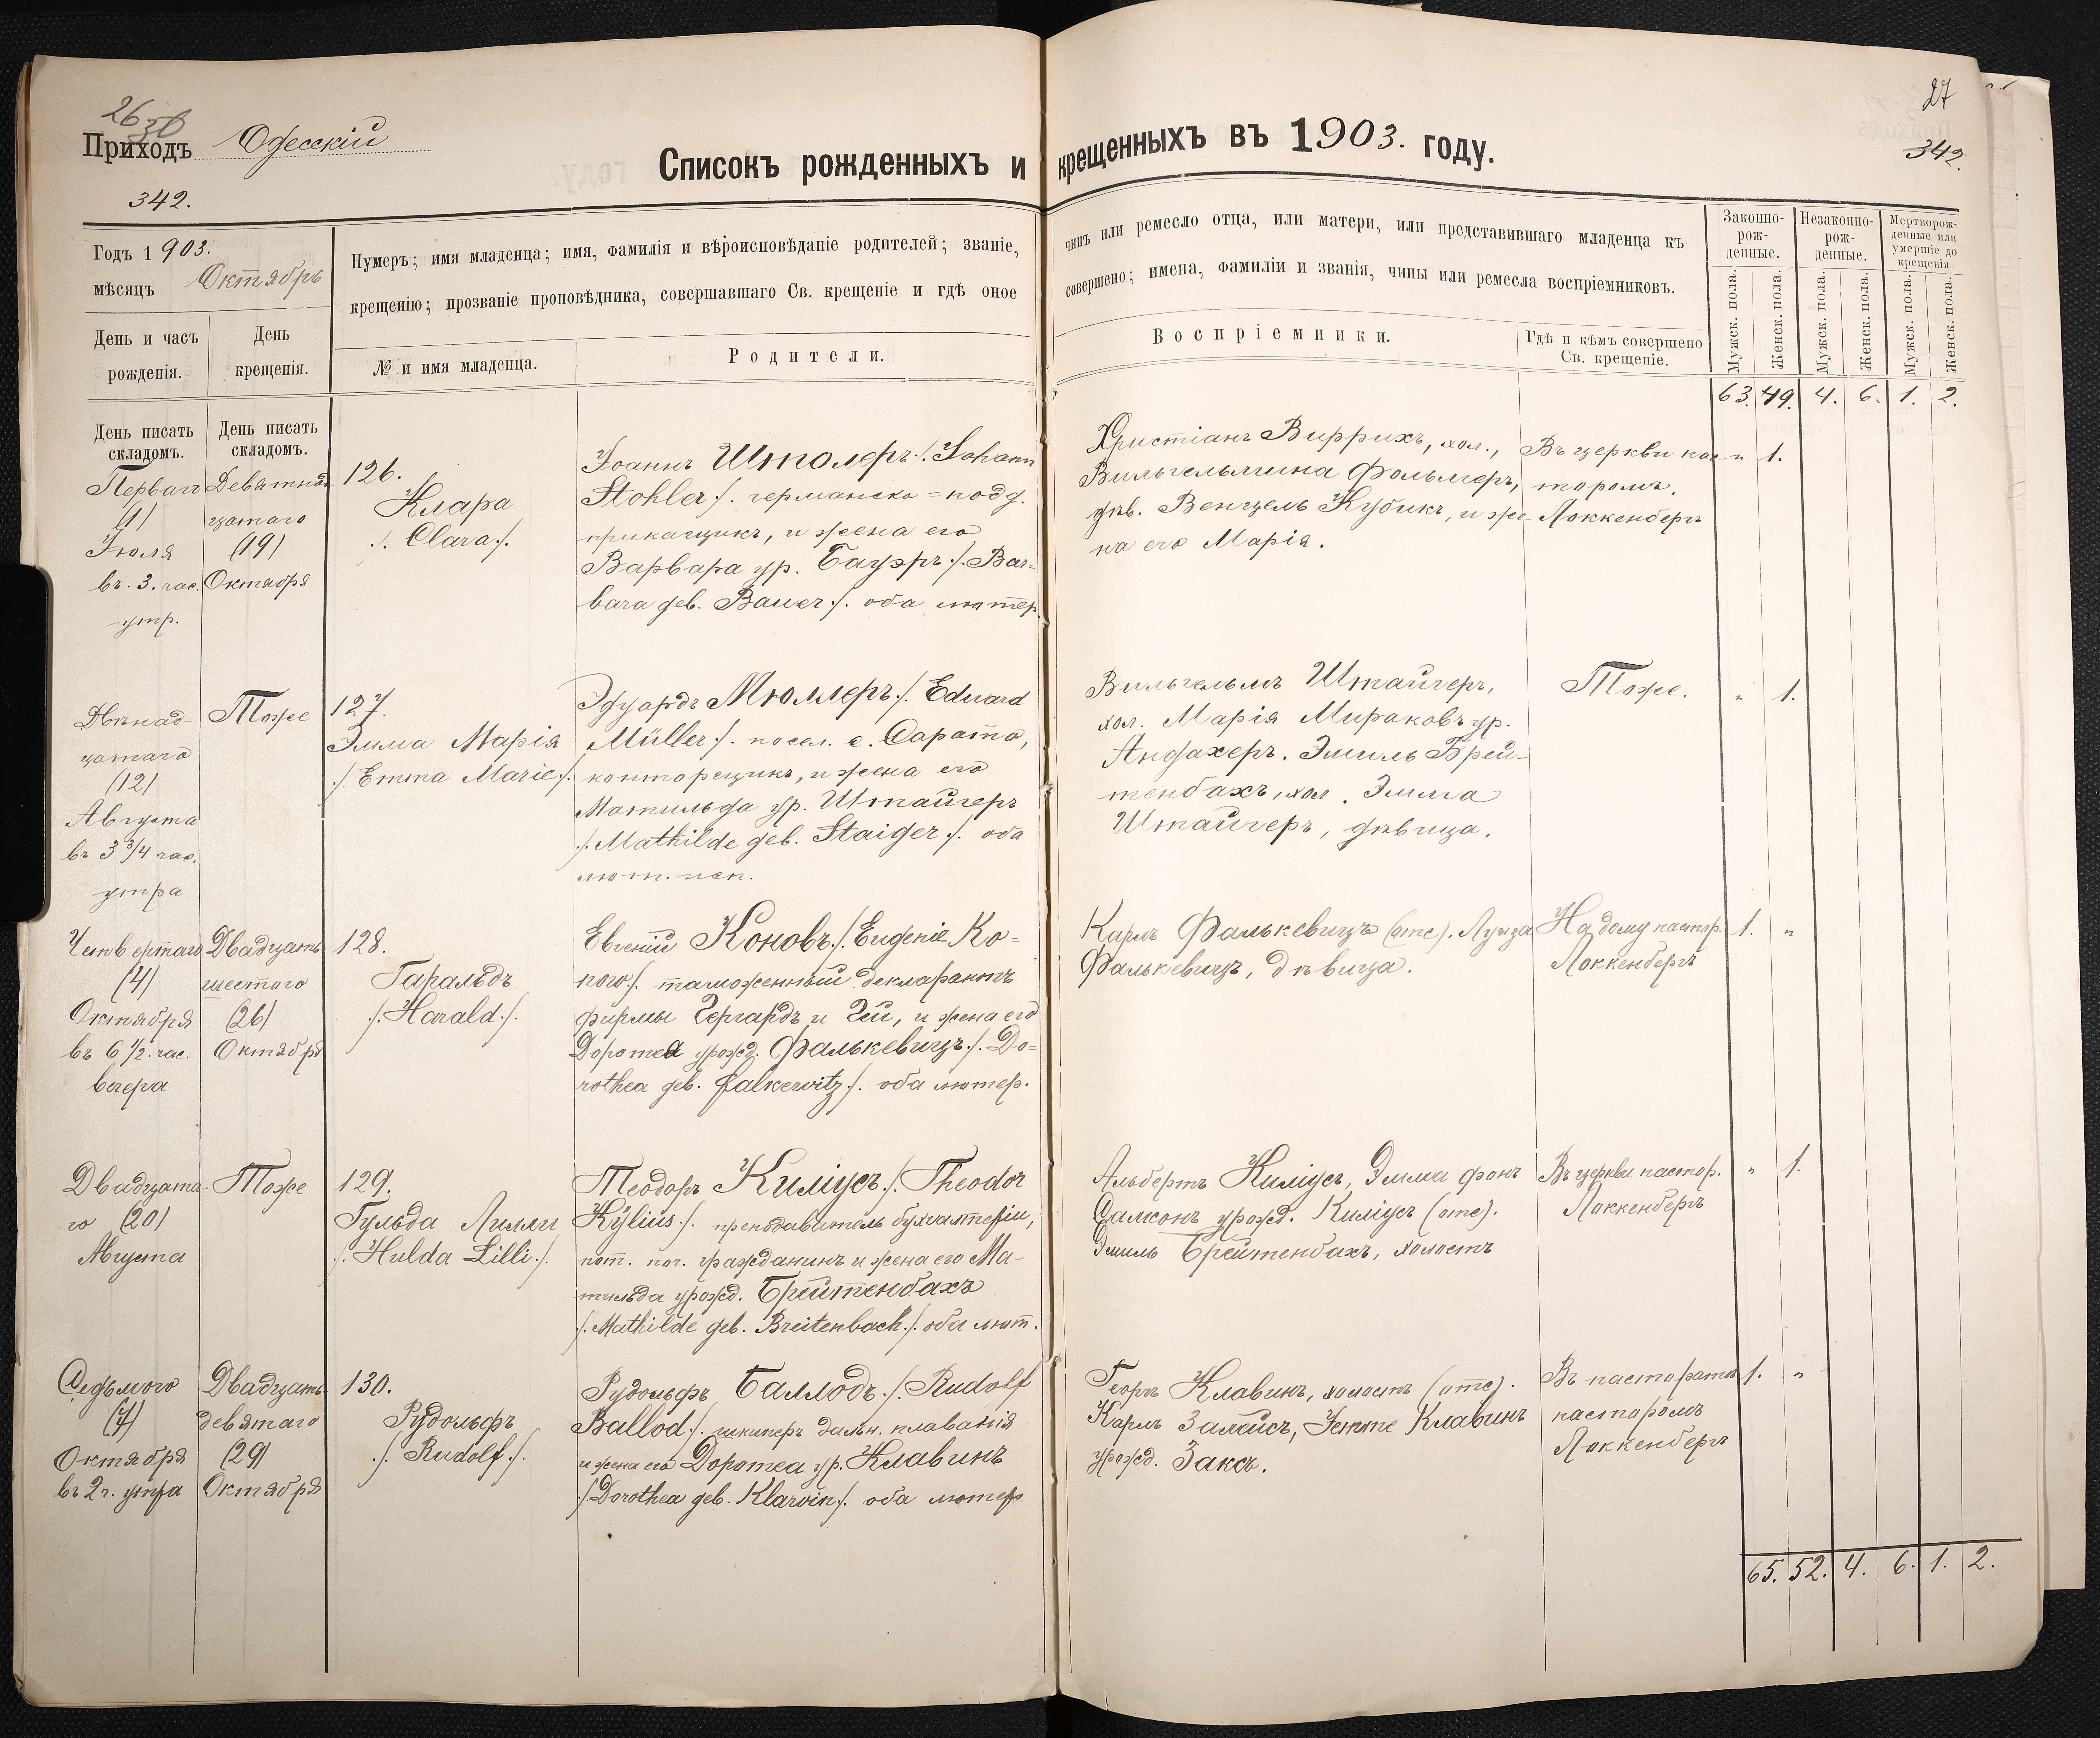 26
30
Приходъ Одесскій
342.
Списокъ рожденныхъ и крещенныхъ въ 1903. году.
27
342.
Годъ 1903.
мѣсяцъ Октябрь
Нумеръ; имя младенца; имя, фамилія и вѣроисповѣданіе родителей; званіе,
крещенію; прозваніе проповѣдника, совершавшаго Св. крещеніе и гдѣ оное
День и часъ
рожденія.
День
крещенія.
№ и имя младенца.
Родители.
чинъ или ремесло отца, или матери, или представившаго младенца къ
совершено; имена, фамиліи и званія, чины или ремесла воспріемниковъ.
Воспріемники.
Гдѣ и кѣмъ совершено
Св. крещеніе.
Законно-
рож-
денные.
Незаконно-
рож-
денные.
Мертворож-
денные или
умершіе до
крещенія.
Мужск. пола.
Женск. пола.
Мужск. пола.
Женск. пола.
Мужск. пола.
Женск. пола.
63. 49. 4. 6. 1. 2.
День писать
складомъ.
День писать
складомъ.
Перваго
(1)
Іюля
въ 3. час.
утр.
Девятнад
цатаго
(19)
Октября
126.
Клара
./. Clara ./.
Іоаннъ Штолеръ ./. Johann
Stohler ./. германско=подд.
прикащикъ, и жена его
Варвара ур. Бауэръ ./. Bar=
bara geb. Bauer ./. оба лютер.
Христіанъ Виррихъ, хол.,
Вильгельмина Фольмеръ,
дѣв. Венцель Кубикъ, и же-
на его Марія.
Въ церкви пас-
торомъ.
Локкенбергъ
" 1.
Двѣнад-
цатаго
(12)
Августа
въ 3 3/4 час.
утра
Тоже
127.
Эмма Марія
./. Emma Marie ./.
Эдуардъ Мюллеръ ./. Eduard
Müller ./. посел. с. Сарата,
конторщикъ, и жена его
Матильда ур. Штайгеръ
./. Mathilde geb. Staiger ./. оба
лют. исп.
Вильгельмъ Штайгеръ,
хол. Марія Мираковъ ур.
Андахеръ. Эмиль Брей-
тенбахъ, хол. Эмма
Штайгеръ, дѣвица.
Тоже.
" 1.
Четвертаго
(4)
Октября
въ 6 1/2. час.
вечера
Двадцать
шестого
(26)
Октября
128.
Гаральдъ
./. Harald ./.
Евгеній Коновъ ./. Eugenie Ko=
now ./. таможенный декларантъ
фирмы Гергардъ и Гей, и жена его
Доротеа урожд. Фалькевицъ ./. Do=
rothea geb. Falkewitz ./. оба лютер.
Карлъ Фалькевицъ (отс). Луиза
Фалькевицъ, дѣвица.
На дому пастор.
Локкенбергъ
1. "
Двадцата-
го (20)
Августа
Тоже
129.
Гульда Лилли
./. Hulda Lilli ./.
Теодоръ Киліусъ ./. Theodor
Kylius ./. преподаватель бухгалтеріи,
пот. поч. гражданинъ и жена его Ма-
тильда урожд. Брейтенбахъ
./. Mathilde geb. Breitenbach ./. оба лют.
Альбертъ Киліусъ, Эмма фонъ
Салконъ урожд. Киліусъ (отс).
Эмиль Брейтенбахъ, холостъ
Въ церкви пастор.
Локкенбергъ
" 1.
Седьмого
(7)
Октября
въ 2 ч. утра
Двадцать
девятаго
(29)
Октября
130.
Рудольфъ
./. Rudolf ./.
Рудольфъ Баллодъ ./. Rudolf
Ballod ./. шкиперъ дальн. плаванія
и жена его Доротеа ур. Клавинъ
./. Dorothea geb. Klawin ./. оба лютер
Георгъ Клавинъ, холостъ (отс).
Карлъ Залейсъ, Клавинъ
урожд. Заксъ.
Въ пасторатѣ
пасторомъ
Локкенбергъ
1. "
65. 52. 4. 6. 1. 2.